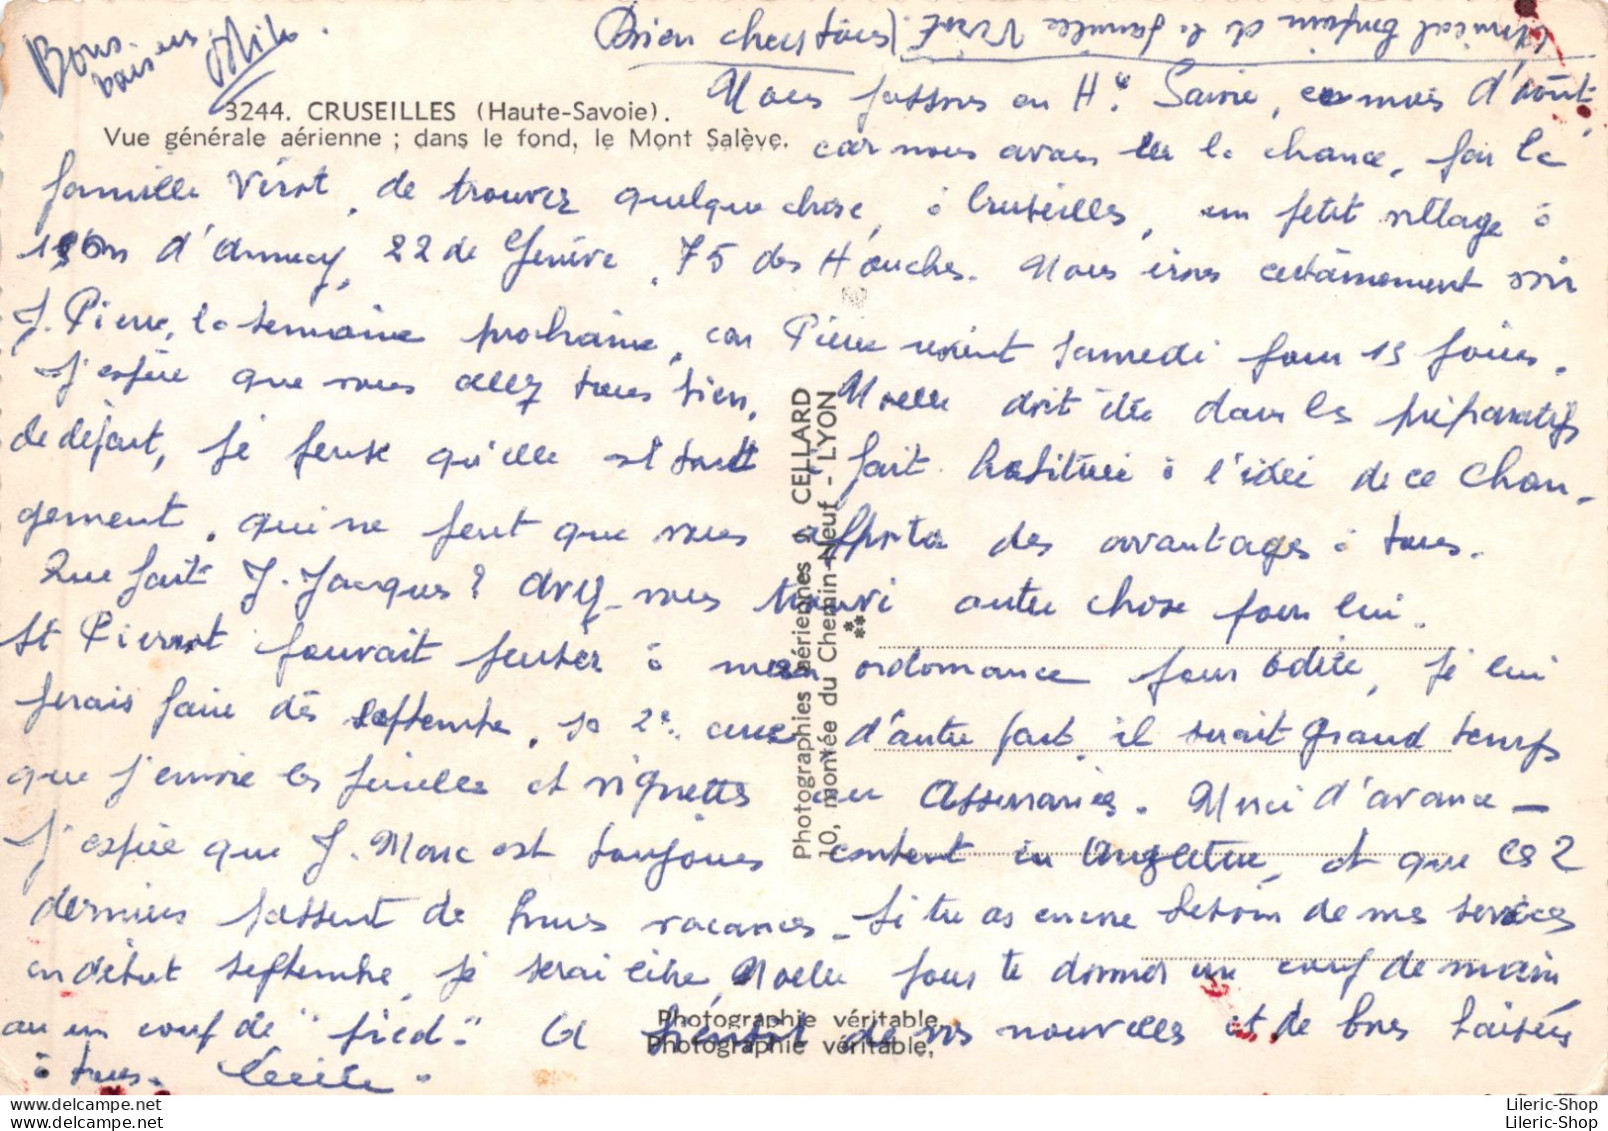 Bons baisers
Bien chers tous (Amical bonjour de la famille Virot.)
3244. CRUSEILLES (Haute-Savoie).
Vue générale aérienne ; dans le fond, le Mont Salève.
Nous passons en Hte Savoie, ce mois d'août,
car nous avons eu la chance, par la
famille Virot, de trouver quelque chose, à Cruseilles, un petit village à
d'Annecy, 22 de Genève, 75 des Houches. Nous irons certainement voir
J. Pierre, la semaine prochaine, car Pierre revient samedi pour 15 jours.
J'espère que vous allez tous bien, Noelle doit être dans les préparatifs
de départ, je pense qu'elle est tout à fait habituée à l'idée de ce chan-
gement, qui ne peut que vous apporter des avantages à tous.
Que fait J. Jacques ? Avez-vous trouvé autre chose pour lui.
Si Pierrot pouvait penser à mon ordonnance pour Odile, je lui
ferais faire dès septembre, sa 2e cure d'autre part, il serait grand temps
que j'envoie les feuilles et vignettes aux Assurances. Merci d'avance -
J'espère que J. Marc est toujours content en Angleterre, et que ces 2
derniers passent de bonnes vacances - Si tu as encore besoin de mes services
en début septembre, je serai libre, Noelle pour te donner un coup de main
ou un coup de "pied". A bientôt de vos nouvelles et de bons baisers
à tous. Cécile
Photographies aériennes CELLARD
10, montée du Chemin-Neuf - LYON
Photographie véritable.
Photographie véritable.
Lileric-Shop
Lileric-Shop